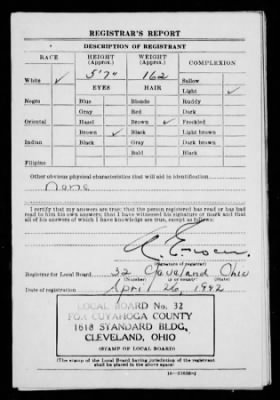 REGISTRAR'S REPORT
DESCRIPTION OF REGISTRANT
RACE HEIGHT (Approx.) WEIGHT (Approx.) COMPLEXION
5'7" 162 Sallow
White ✓ EYES HAIR Light ✓
Negro Blue Blonde Ruddy
Gray Red Dark
Oriental Hazel Brown ✓ Freckled
Brown ✓ Black Light brown
Indian Black Gray Dark brown
Bald Black
Filipino
Other obvious physical characteristics that will aid in identification
None
I certify that my answers are true; that the person registered has read or has had read to him his own answers; that I have witnessed his signature or mark and that all of his answers of which I have knowledge are true, except as follows:
(Signature of registrar)
Registrar for Local Board 32 Cleveland Ohio
(Number) (City or county) (State)
Date of registration April 26, 1942
LOCAL BOARD No. 32
FOR CUYAHOGA COUNTY
1618 STANDARD BLDG.,
CLEVELAND, OHIO
(STAMP OF LOCAL BOARD)
(The stamp of the Local Board having jurisdiction of the registrant
shall be placed in the above space)